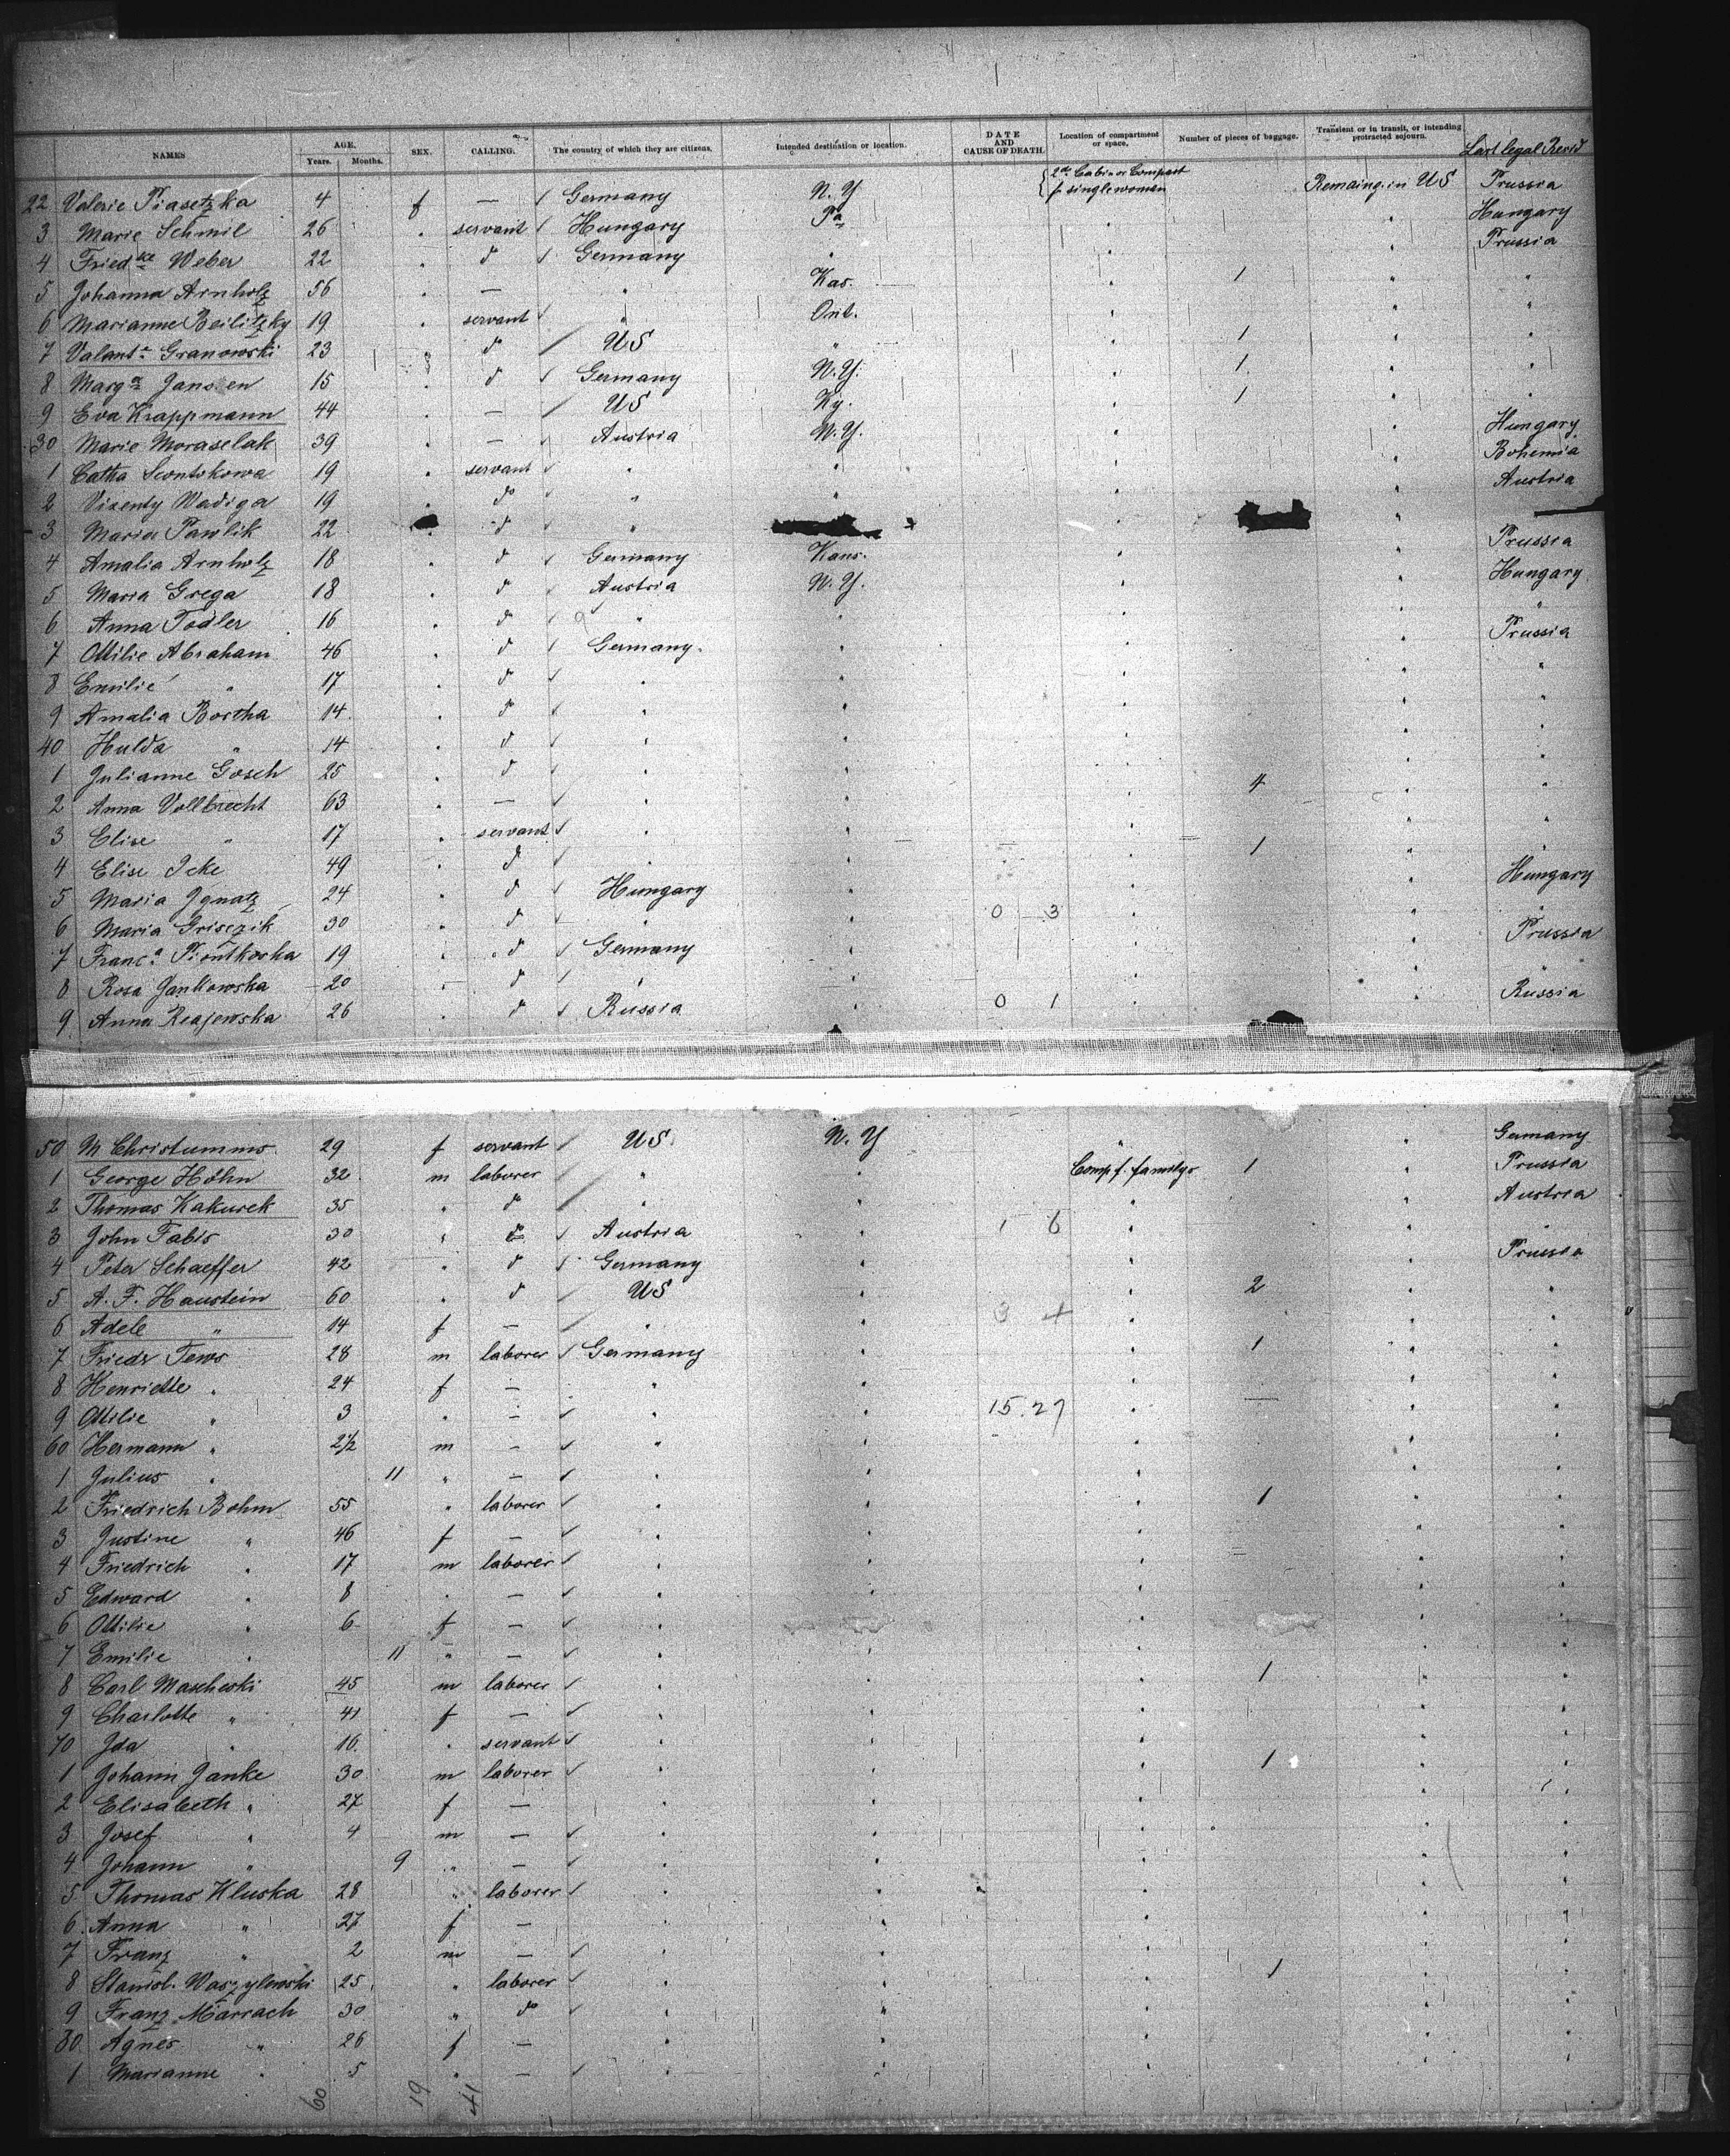 NAMES AGE. Years. Months. SEX. CALLING. The country of which they are citizens. Intended destination or location. DATE AND CAUSE OF DEATH. Location of compartment or space. Number of pieces of baggage. Transient or in transit, or intending protracted sojourn. Last legal Resid
22 Valerie Piasetzka 4 f — Germany N.Y 2nd Cabin or Compart f. single women Remaing. in US Prussia
3 Marie Schmil 26 " servant Hungary Pa " " Hungary
4 Friedke Weber 22 " do Germany " " " Prussia
5 Johanna Arnholz 56 " — " Kas. " 1 " "
6 Marianne Beilitzky 19 " servant " Ont. " " "
7 Valant. Granowski 23 " do US " " 1 " "
8 Marg. Janssen 15 " do Germany N.Y. " 1 " "
9 Eva Krappmann 44 " — US Ky. " 1 " "
30 Marie Moraselak 39 " — Austria N.Y. " " Hungary
1 Catha Scontokowa 19 " servant " " " " Bohemia
2 Vizenty Wadiga 19 " do " " " " Austria
3 Maria Pawlik 22 do " " "
4 Amalia Arnholz 18 " do Germany Kans. " " Prussia
5 Maria Grega 18 " do Austria N.Y. " " Hungary
6 Anna Todler 16 " do " " " " "
7 Ottilie Abraham 46 " do Germany. " " " Prussia
8 Emilie " 17 " do " " " " "
9 Amalia Bortha 14 " do " " " " "
40 Hulda " 14 " do " " " " "
1 Julianne Gosch 25 " do " " " " "
2 Anna Vollbrecht 63 " — " " " 4 " "
3 Elise " 17 " servant " " " " "
4 Elise Icke 49 " do " " " 1 " "
5 Maria Ignatz 24 " do Hungary " " " Hungary
6 Maria Grisczik 30 " do " " 0 3 " " "
7 Franca Piontkoska 19 " do Germany " " " Prussia
8 Rosa Jankowska 20 " do " " " " "
9 Anna Reajewska 26 " do Russia " 0 1 " " Russia
50 M Christumms 29 f servant US N.Y " " Germany
1 George Höhn 32 m laborer " " Comp f. familys 1 " Prussia
2 Thomas Kakurek 35 " do " " " " Austria
3 John Fabis 30 " do Austria " 1 6 " " "
4 Peter Schaeffer 42 " do Germany " " " Prussia
5 A. F. Haustein 60 " do US " " 2 " "
6 Adele " 14 f — " " 3 4 " " "
7 Friedr Tews 28 m laborer Germany " " 1 " "
8 Henriette " 24 f — " " " " "
9 Ottilie " 3 " — " " 15.27 " — " "
60 Hermann " 2½ m — " " " " "
1 Julius " 11 " — " " " " "
2 Friedrich Bohm 55 " laborer " " " 1 " "
3 Justine " 46 f — " " " " "
4 Friedrich " 17 m laborer " " " " "
5 Edward " 8 " — " " " " "
6 Ottilie " 6 f — " " " " "
7 Emilie " 11 " — " " " " "
8 Carl Mascheski 45 m laborer " " " 1 " "
9 Charlotte " 41 f — " " " " "
70 Ida " 16 " servant " " " " "
1 Johann Janke 30 m laborer " " " 1 " "
2 Elisabeth " 27 f — " " " " "
3 Josef " 4 m — " " " " "
4 Johann " 9 " — " " " " "
5 Thomas Kluska 28 " laborer " " " " "
6 Anna " 27 f — " " " " "
7 Franz " 2 m — " " " " "
8 Stanisl. Waszylewski 25 " laborer " " " 1 " "
9 Franz Marrach 30 " do " " " " "
80 Agnes " 26 f — " " " " "
1 Marianne " 5 " — " " " " "
60 19 41